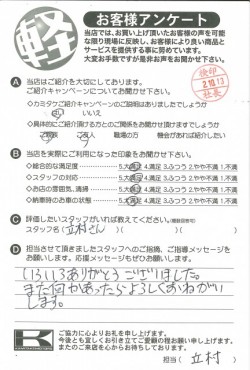 軽
お客様アンケート
当店では、お買い上げ頂いたお客様の声を可能
な限り現場に反映し、お客様により良い商品と
サービスを提供する事に努めています。
大変お手数ですが是非お声をお聞かせ下さい。
検印
2.10.13
A 当店はご紹介を大切にしております。
ご紹介キャンペーンについてお聞かせ下さい。
◇カミタケご紹介キャンペーンのご説明はありましたでしょうか
はい いいえ
◇具体的にご紹介頂ける方とのご関係をお聞かせ頂けますでしょうか
ご家族 ご友人 職場の方 機会があれば紹介したい
B 当店を実際にご利用になった印象をお聞かせ下さい。
◇総合的な満足度 5.大満足 4.満足 3.ふつう 2.やや不満 1.不満
◇スタッフの対応 5.大満足 4.満足 3.ふつう 2.やや不満 1.不満
◇お店の雰囲気、清掃 5.大満足 4.満足 3.ふつう 2.やや不満 1.不満
◇納車時のお車の状態 5.大満足 4.満足 3.ふつう 2.やや不満 1.不満
C 評価したいスタッフがいれば教えてください。(複数回答可)
スタッフ名( 立村さん )
D 担当させて頂きましたスタッフへのご指摘、ご指導メッセージを
お願いします。応援メッセージもぜひお願いします。
いろいろありがとうございました。
また何かあったらよろしくおねがい
します。
K
ご協力に心よりお礼を申し上げます。
今後とも宜しくお引き立てご愛顧の程お願い申し上げます。
またのご来店を心からお待ちしております。
担当( 立村 )